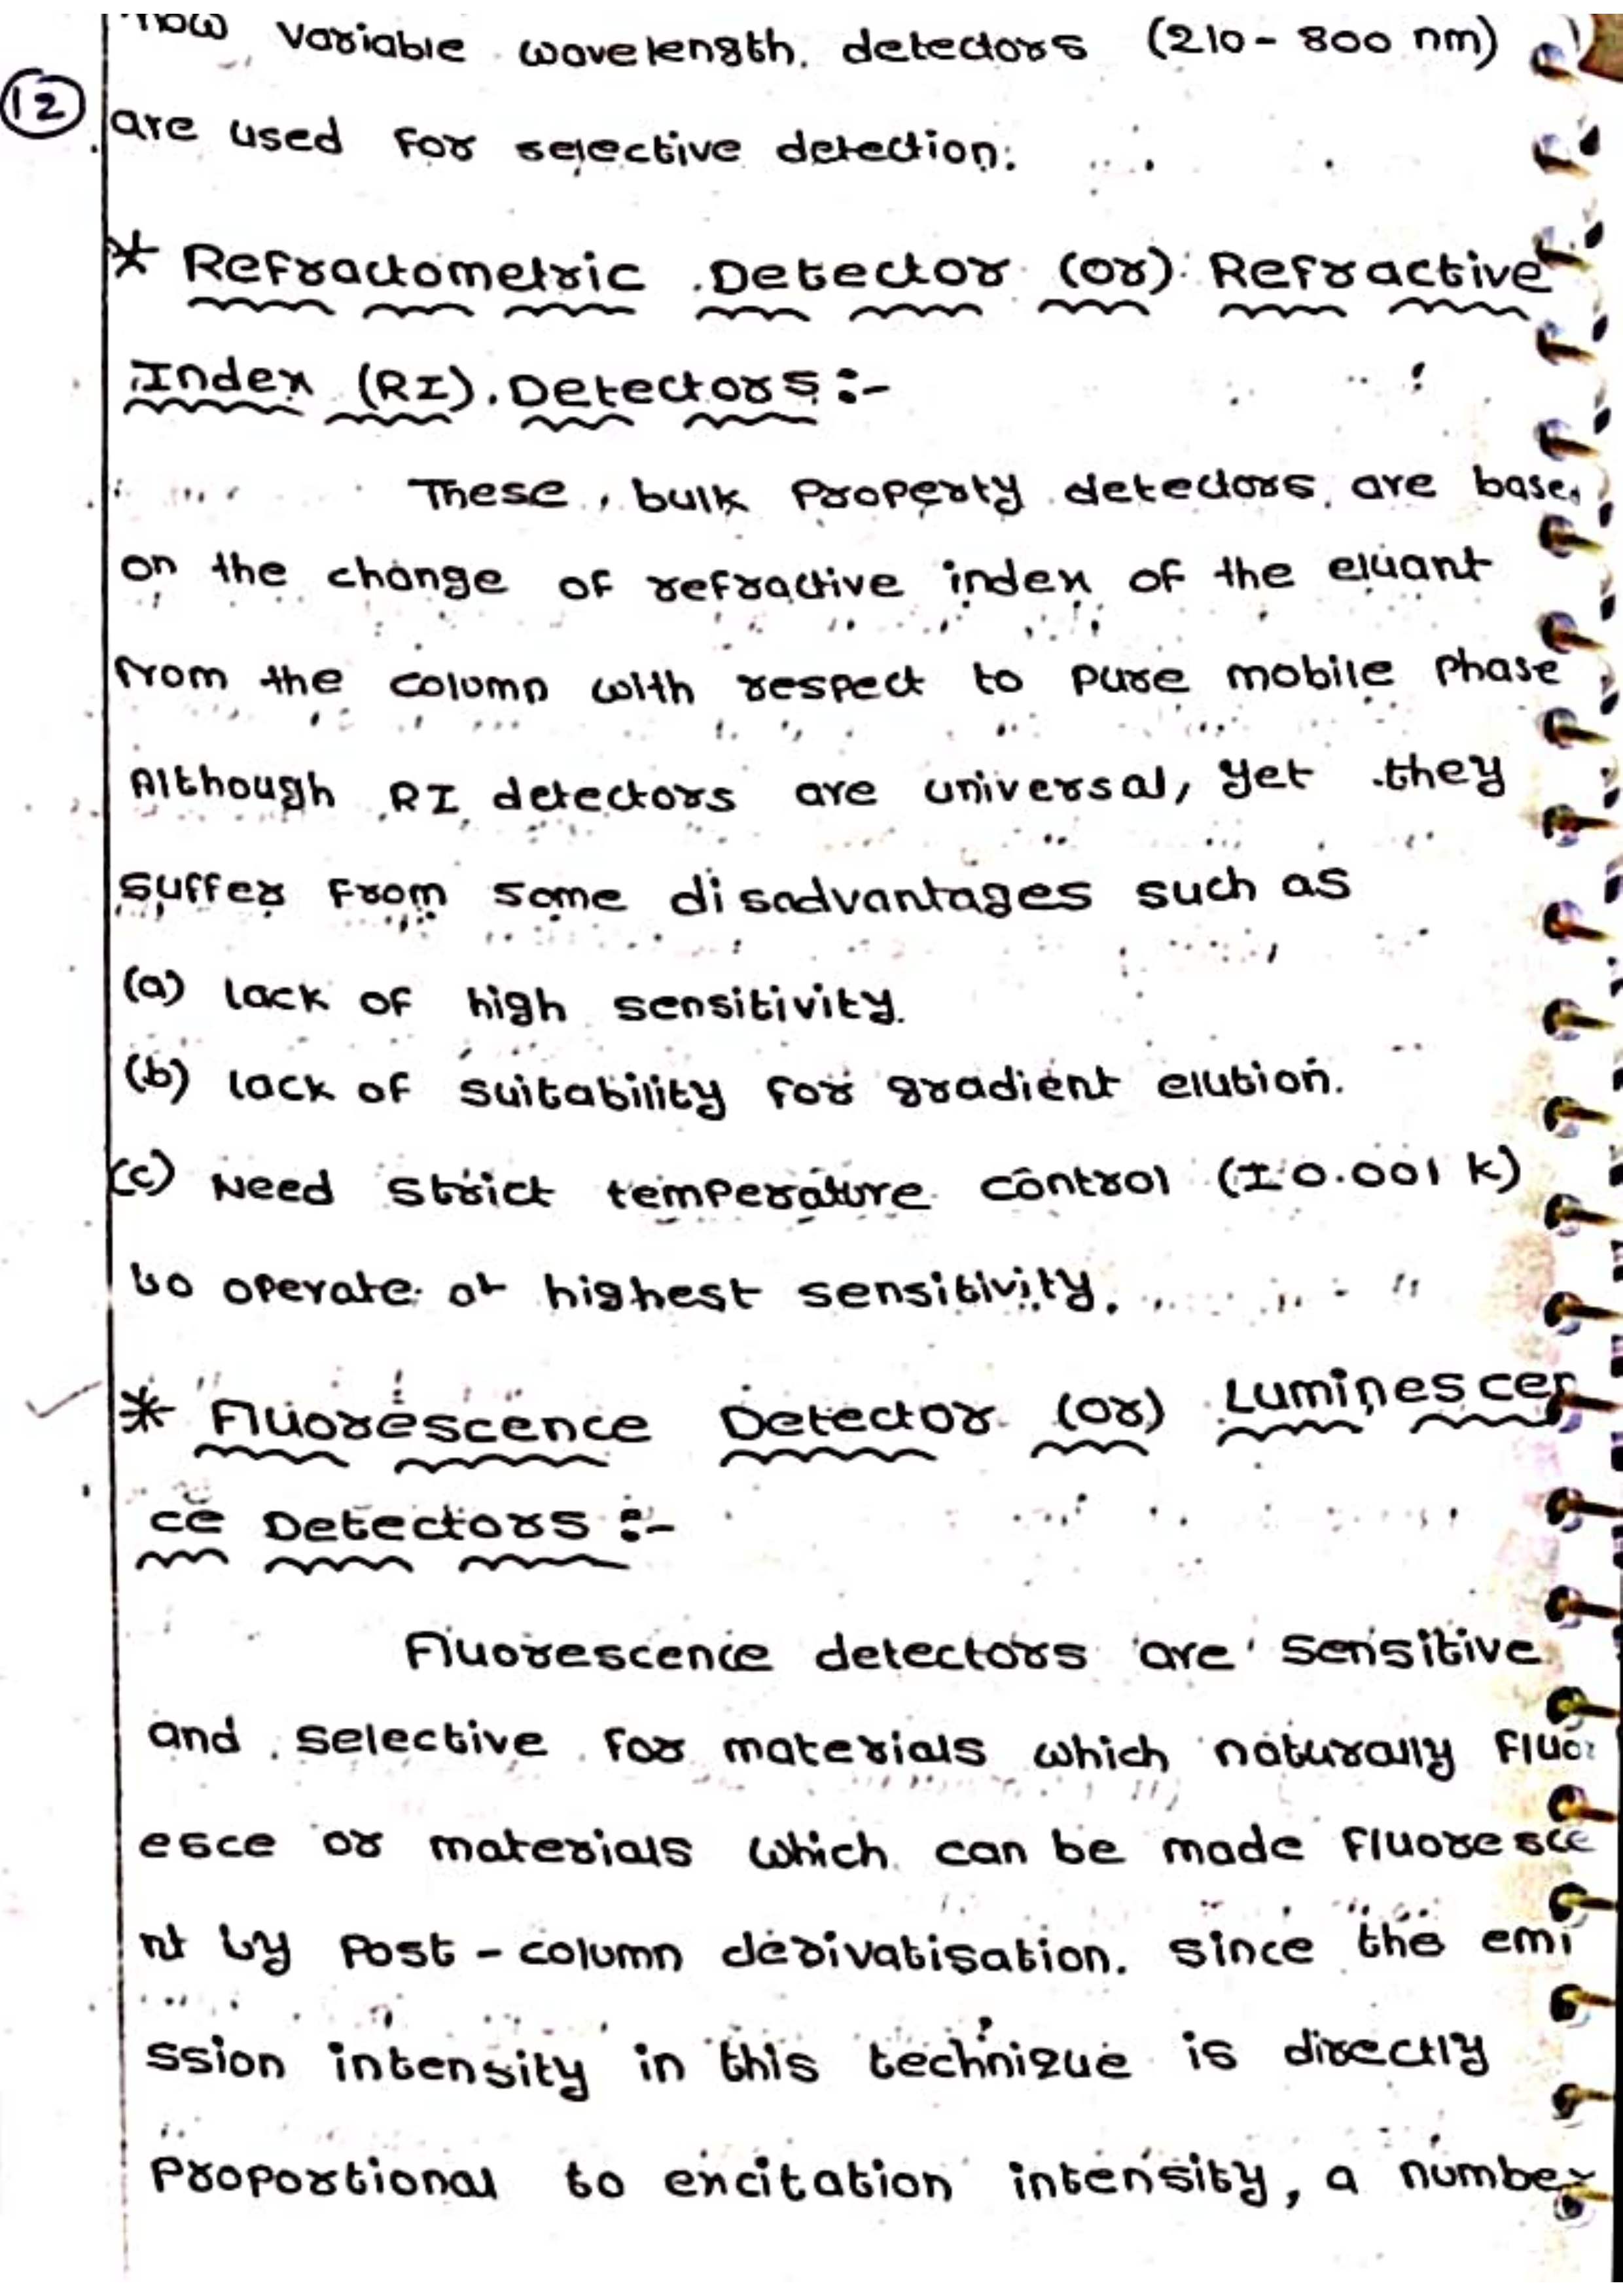 now variable wavelength detectors (210 - 800 nm)
12
are used for selective detection.
* Refractometric Detector (or) Refractive
Index (RI) Detectors :-
These bulk Property detectors are base
on the change of refractive index of the eluant
from the column with respect to pure mobile Phase
Although RI detectors are universal, yet they
suffer from some disadvantages such as
(a) lack of high sensitivity.
(b) lack of suitability for gradient elution.
(c) Need strict temperature control (± 0.001 k)
to operate at highest sensitivity.
* Fluorescence Detector (or) Luminescen
ce Detectors :-
Fluorescence detectors are sensitive
and selective for materials which naturally fluor
esce or materials which can be made fluoresce
nt by Post - column derivatisation. since the emi
ssion intensity in this technique is directly
Proportional to excitation intensity, a number